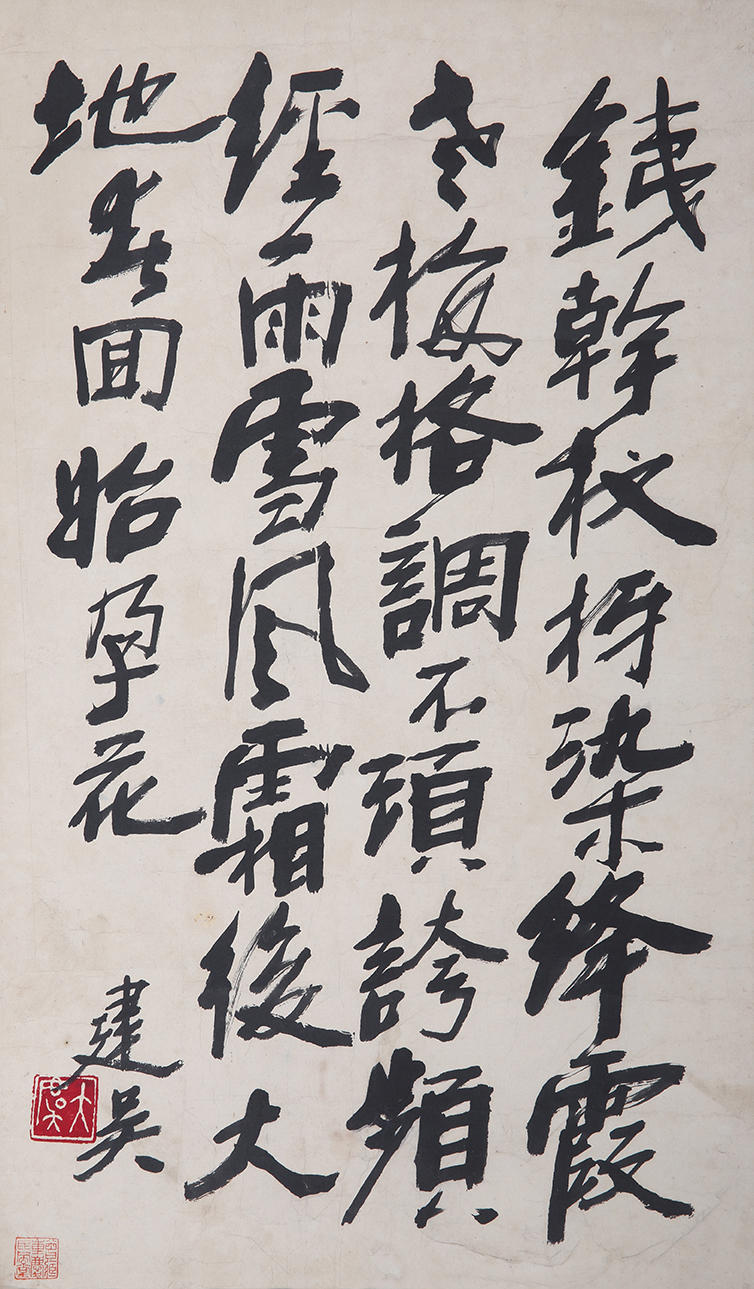 銕幹杈枒染絳霞
老梅格調不須誇頻
經雨雪風霜後大
地春回始孕花
建吳
大吳